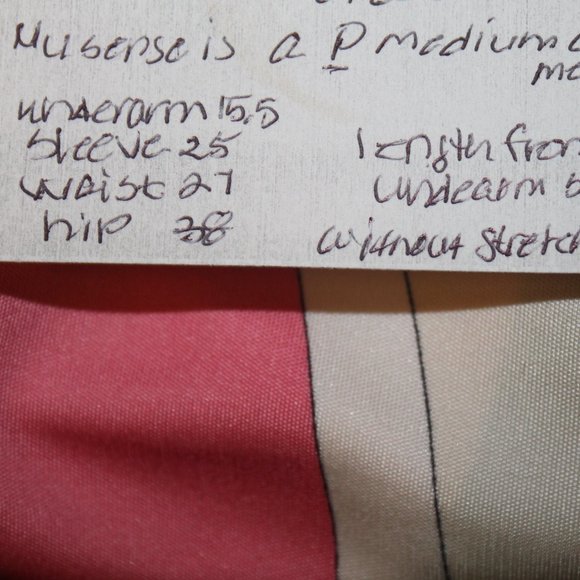 My sense is a P medium
underarm 15.5
sleeve 25
waist 27
hip 38
length from
underarm
without stretch